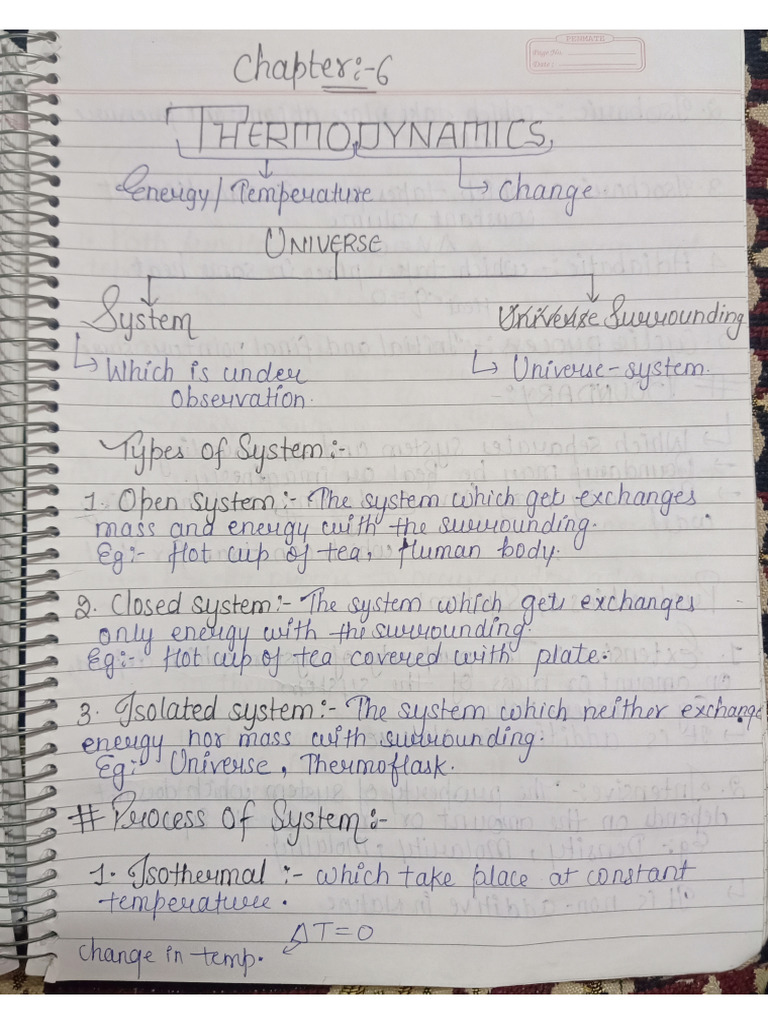 PENMATE
Page No.
Date :
Chapter:-6
THERMODYNAMICS
Energy/Temperature
Change
UNIVERSE
System
Universe Surrounding
Which is under
Universe-system.
observation.
Types of System:-
1. Open system:- The system which get exchanges
mass and energy with the surrounding.
Eg:- Hot cup of tea, Human body.
2. Closed system:- The system which get exchanges
only energy with the surrounding.
Eg:- Hot cup of tea covered with plate.
3. Isolated system:- The system which neither exchange
energy nor mass with surrounding.
Eg:- Universe, Thermoflask.
# Process of System:-
1. Isothermal :- which take place at constant
temperature.
ΔT=0
change in temp.